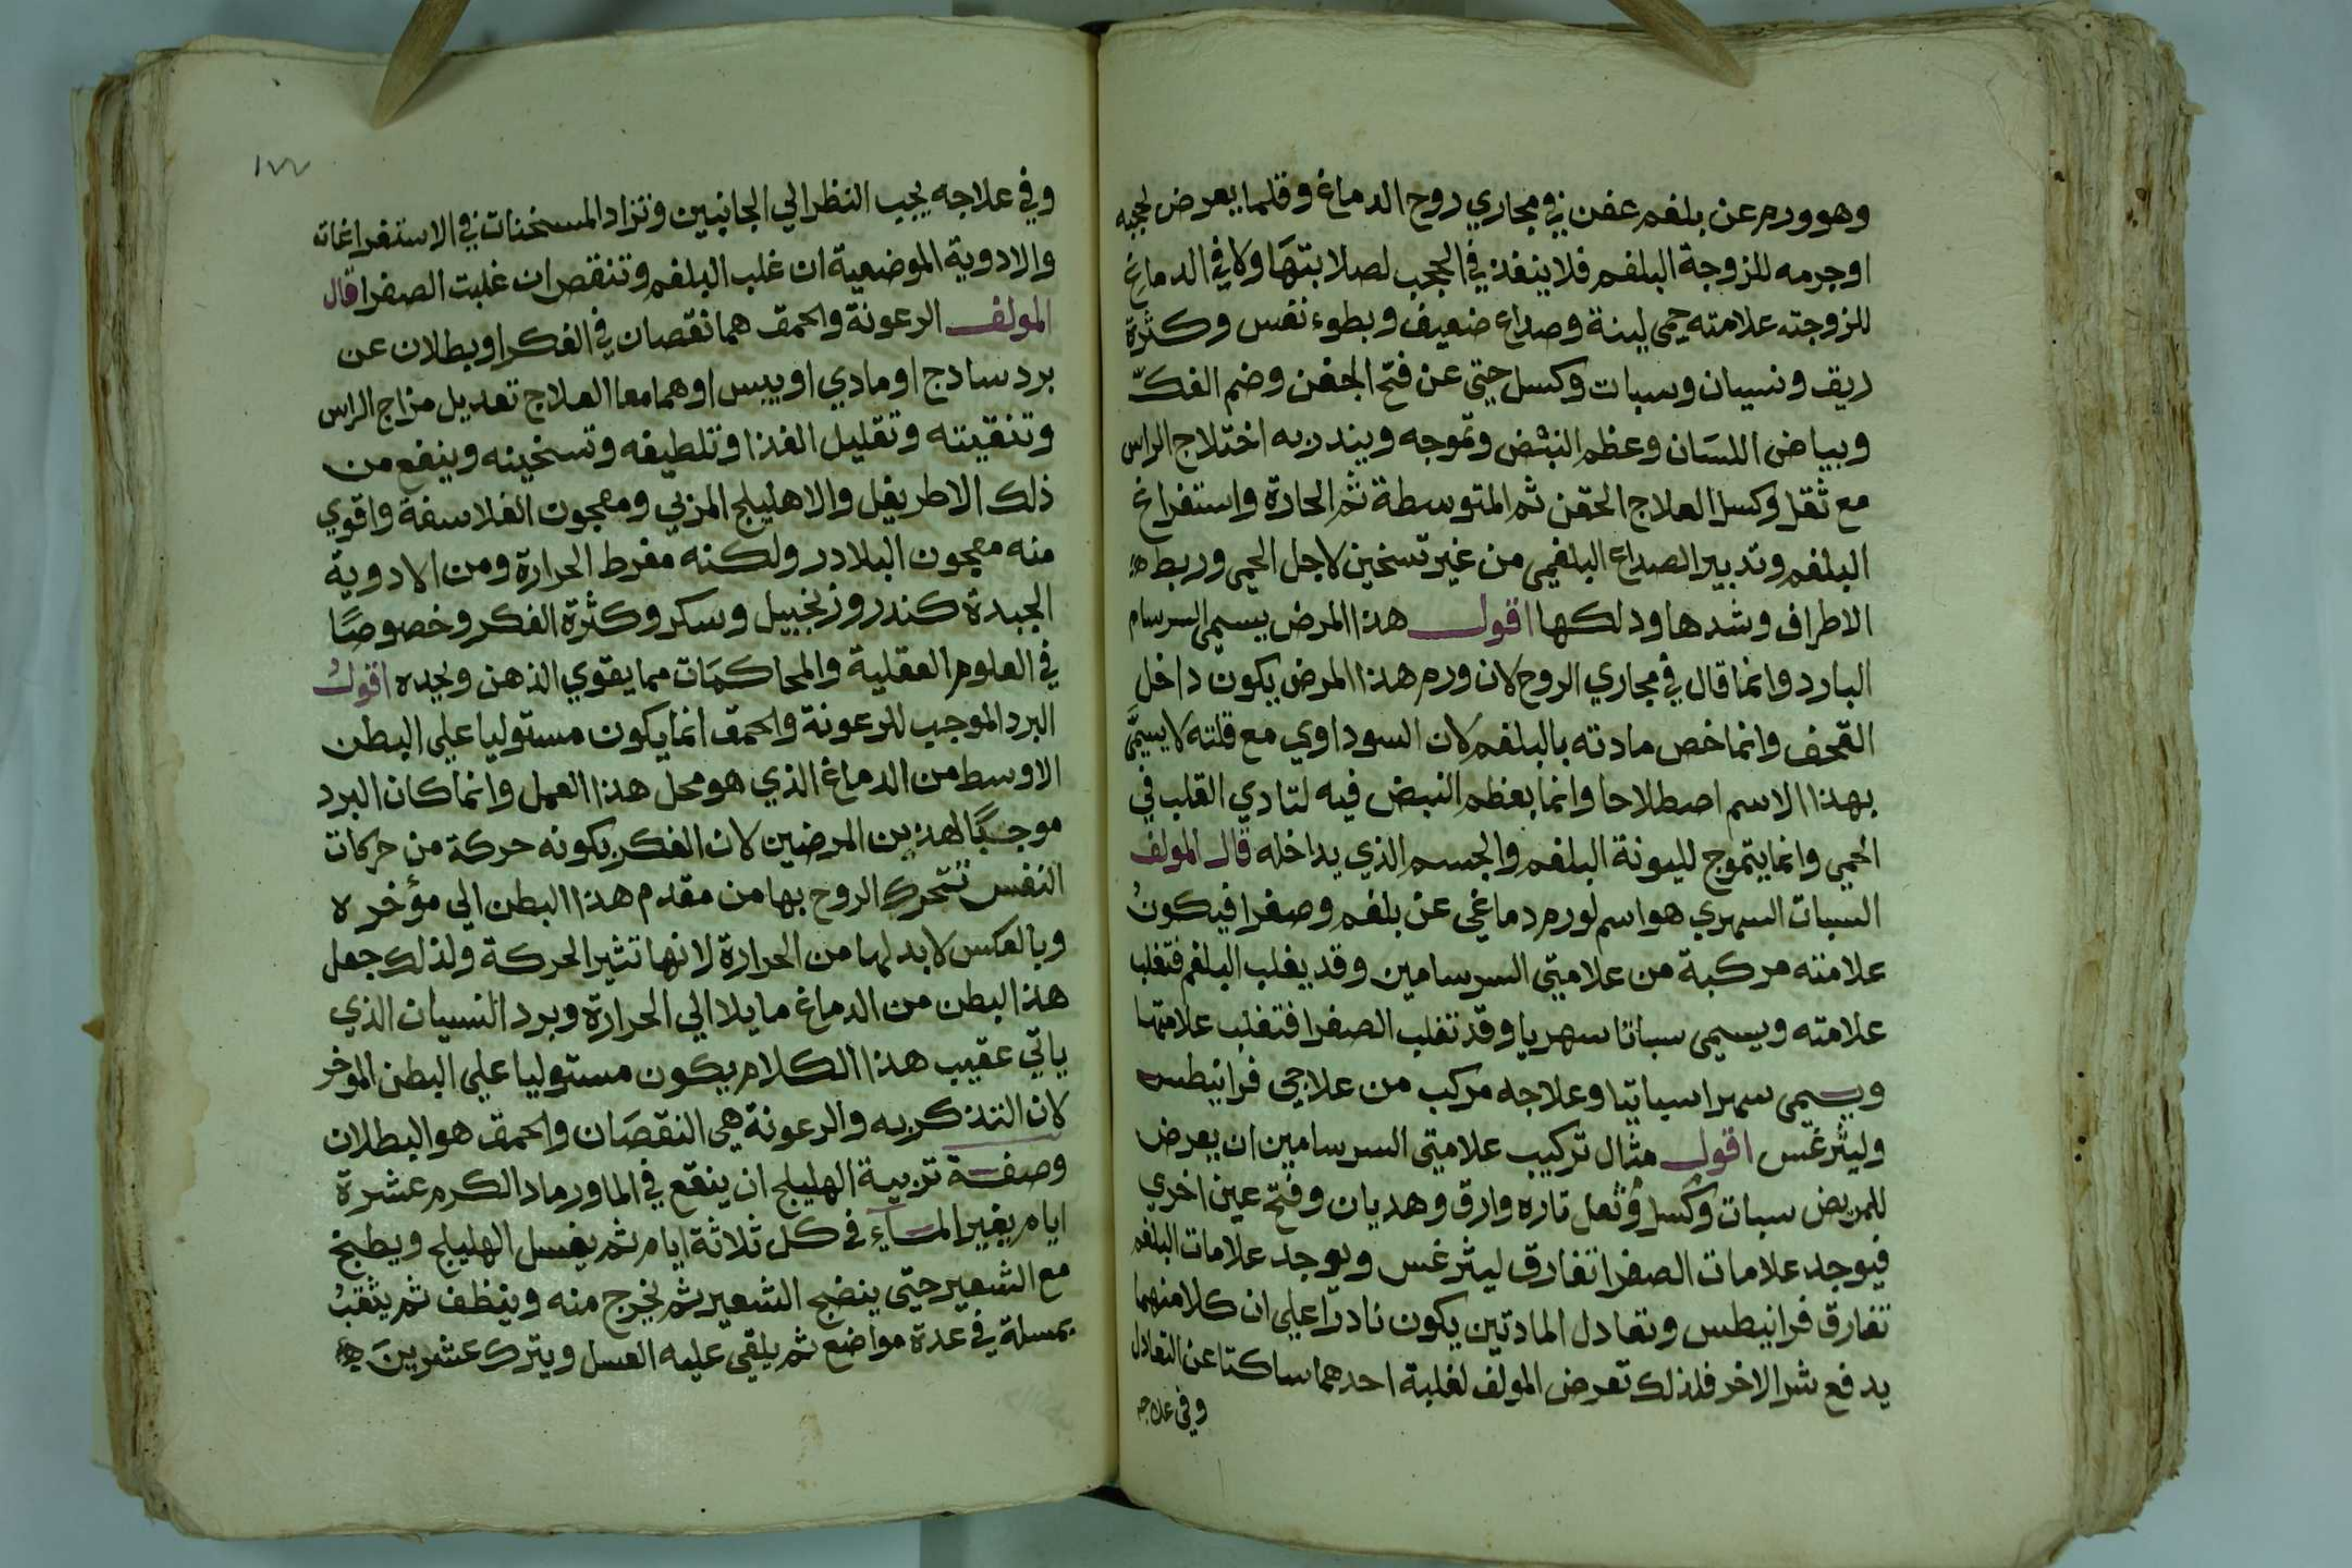 وهو ورم عن بلغم عفن في مجاري روح الدماغ وقلما يعرض لحجبه
او جرمه للزوجة البلغم فلا ينفذ في الحجب لصلابتها ولا في الدماغ
للزوجته علامته حمى لينة وصداع ضعيف وبطوء نفس وكثرة
ريق ونسيان وسبات وكسل حتى عن فتح الجفن وضم الفك
وبياض اللسان وعظم النبض وتموجه ويندر به اختلاج الراس
مع ثقل وكسل العلاج الحقن ثم المتوسطة ثم الحادة واستفراغ
البلغم وتدبير الصداع البلغمي من غير تسخين لاجل الحمى وربط
الاطراف وشدها ودلكها اقول هذا المرض يسمى السرسام
البارد وانما قال في مجاري الروح لان ورم هذا المرض يكون داخل
القحف وانما خص مادته بالبلغم لان السوداوي مع قلته لا يسمى
بهذا الاسم اصطلاحا وانما يعظم النبض فيه لتادي القلب في
الحمي وانما يتموج لليونة البلغم والجسم الذي يداخله قال المولف
السبات السهري هو اسم لورم دماغي عن بلغم وصفرا فيكون
علامته مركبة من علامتي السرسامين وقد يغلب البلغم فتغلب
علامته ويسمى سباتا سهريا وقد تغلب الصفرا فتغلب علامتها
ويسمى سهرا سباتيا وعلاجه مركب من علاجي فرانيطس
وليثرغس اقول مثال تركيب علامتي السرسامين ان يعرض
للمريض سبات وكسل وثقل تارة وارق وهديان وفتح عين اخري
فيوجد علامات الصفرا تفارق ليثرغس ويوجد علامات البلغم
تفارق فرانيطس وتعادل المادتين يكون نادرا علي ان كلا منهما
يدفع شر الاخر فلذلك تعرض المولف لغلبة احدهما ساكتا عن التعادل
وفي علاجه
١٧٧
وفي علاجه يجب النظر الي الجانبين وتزاد المسخنات في الاستفراغات
والادوية الموضعية ان غلب البلغم وتنقص ان غلبت الصفرا قال
المولف الرعونة والحمق هما نقصان في الفكر او بطلان عن
برد سادج او مادي او يبس او هما معا العلاج تعديل مزاج الراس
وتنقيته وتقليل الغذا وتلطيفه وتسخينه وينفع من
ذلك الاطريفل والاهليلج المربي ومعجون الفلاسفة واقوي
منه معجون البلادر ولكنه مفرط الحرارة ومن الادوية
الجيدة كندر وزنجبيل وسكر وكثرة الفكر وخصوصا
في العلوم العقلية والمحاكمات مما يقوي الذهن ويجده اقول
البرد الموجب للرعونة والحمق انما يكون مستوليا علي البطن
الاوسط من الدماغ الذي هو محل هذا العمل وانما كان البرد
موجبا لهذين المرضين لان الفكر بكونه حركة من حركات
النفس تتحرك الروح بها من مقدم هذا البطن الي مؤخره
وبالعكس لا بد لها من الحرارة لانها تثير الحركة ولذلك جعل
هذا البطن من الدماغ مايلا الي الحرارة وبرد النسيان الذي
ياتي عقيب هذا الكلام يكون مستوليا علي البطن الموخر
لان التذكر به والرعونة هي النقصان والحمق هو البطلان
وصفة تربية الهليلج ان ينقع في الما ورماد الكرم عشرة
ايام يغير الماء في كل ثلاثة ايام ثم يغسل الهليلج ويطبخ
مع الشعير حتي ينضج الشعير ثم يخرج منه وينظف ثم يثقب
بمسلة في عدة مواضع ثم يلقى عليه العسل ويترك عشرين